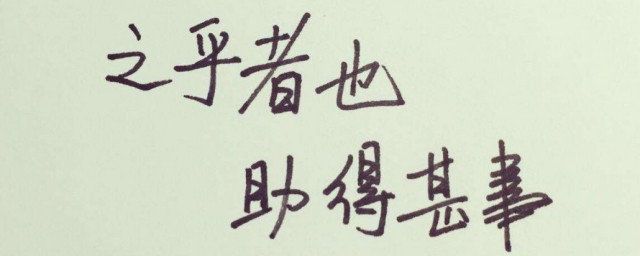 之乎者也
助得甚事